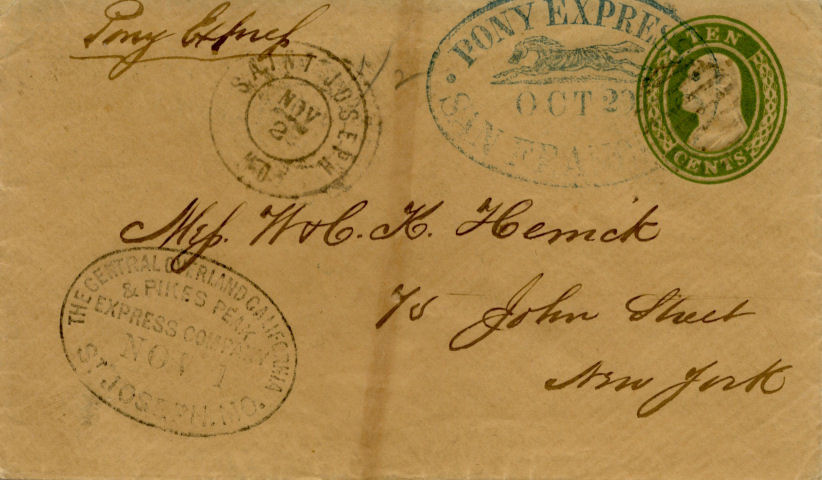 Pony Express
SAINT JOSEPH
NOV
2
MO.
PONY EXPRESS
OCT 20
SAN FRAN
TEN
CENTS
Mess. W & C. K. Herrick
75 John Street
New York
THE CENTRAL OVERLAND CALIFORNIA
& PIKES PEAK
EXPRESS COMPANY
NOV 1
ST JOSEPH. MO.